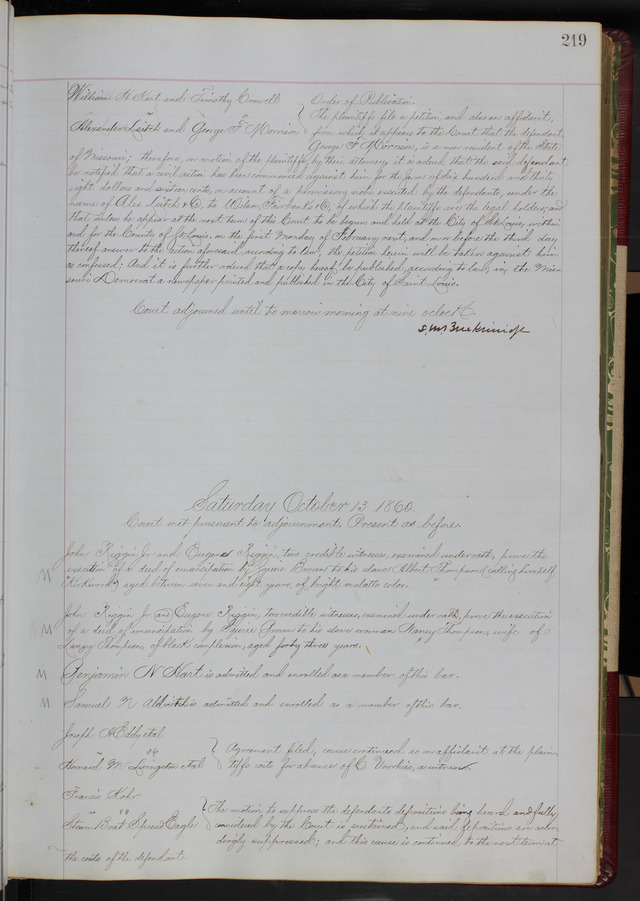 219
William H Hart and Timothy Crowell Order of Publication.
vs The plaintiffs file a petition, and also an affidavit,
Alexander Leitch and George F Morrison from which it appears to the Court, that the defendant,
George F Morrison, is a non resident of the State
of Missouri; therefore, on motion of the plaintiffs, by their attorney, it is ordered that the said defendant
be notified that a civil action has been commenced against him for the sum of six hundred and thirty
eight dollars and sixteen cents, on account of a promissory note executed by the defendants, under the
name of Alex Leitch & Co, to Wilson Fairbanks & Co, of which the plaintiffs are the legal holders; and
that unless he appear at the next term of this Court, to be begun and held at the City of St Louis, within
and for the County of St Louis, on the first Monday of February next, and on or before the third day
thereof answer to the action aforesaid, according to law, the petition herein will be taken against him
as confessed; And it is further ordered that a copy hereof be published, according to law, in the Miss
ouri Democrat a newspaper printed and published in the City of Saint Louis.
Court adjourned until to morrow morning at nine oclock.
S. M. Breckinridge
Saturday October 13 1860.
Court met pursuant to adjournment. Present as before.
John Riggin Jr and Eugene Riggin, two credible witnesses, examined under oath, prove the
execution of a deed of emancipation by Squire Brown to his slave Albert Thompson (calling himself
Kirkwood) aged between seven and eight years, of bright mulatto color.
John Riggin Jr and Eugene Riggin, two credible witnesses, examined under oath, prove the execution
of a deed of emancipation by Squire Brown to his slave woman Nancy Thompson, wife of
Thompson, of black complexion, aged forty three years.
Benjamin N Hart is admitted and enrolled as a member of this bar.
Samuel N is admitted and enrolled as a member of this bar.
Joseph A Eddy et al
vs Agreement filed, cause continued as on affidavit at the plain-
Howard M Livingston et al tiffs costs for absence of C Voorhies, a witness.
Francis Kohr
vs The motion to suppress the defendants depositions being heard and fully
Steam Boat Spread Eagle considered by the Court is sustained, and said depositions are accor-
dingly suppressed; and this cause is continued to the next term at
the costs of the defendant.